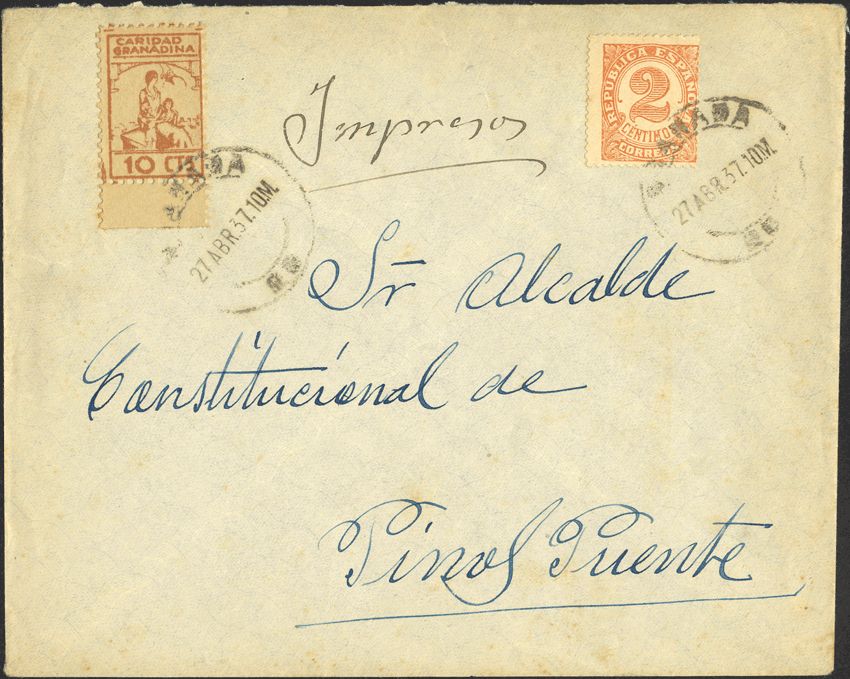 CARIDAD
GRANADINA
10 CTS
Impresos
REPUBLICA ESPAÑOLA
2
CENTIMOS
CORREOS
GRANADA
27 ABR.37.10M.
GRANADA
27 ABR.37.10M.
Sr Alcalde
Constitucional de
Pinos Puente